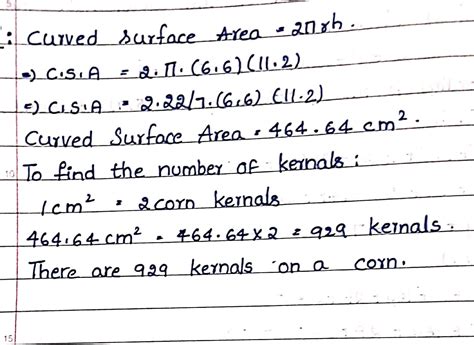 : Curved Surface Area = 2πrh.
=) C.S.A = 2.π.(6.6)(11.2)
=) C.S.A = 2.22/7.(6.6)(11.2)
Curved Surface Area = 464.64 cm².
To find the number of kernals :
1cm² = 2corn kernals
464.64 cm² = 464.64x2 = 929 kernals.
There are 929 kernals on a corn.